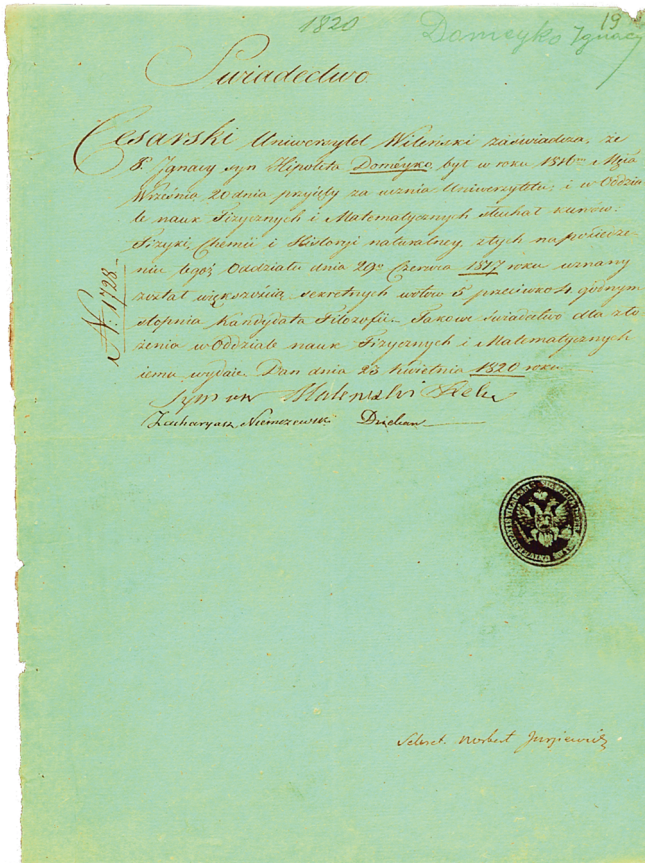 1820
Domeyko Ignacy
19
Świadectwo
Cesarski Uniwersytet Wileński zaświadcza, że
Ignacy syn Hipolita Domeyko, był w roku 1816 Mca
Września 20 dnia przyjęty za ucznia Uniwersytetu, i w Oddzia
le nauk Fizycznych i Matematycznych słuchał kursów:
Fizyki, Chemii i Historyi naturalney, z tych na posiedze
niu tegoż Oddziału dnia 29 Czerwca 1817 roku uznany
został większością sekretnych wotów 5 przeciwko 4 godnym
stopnia Kandydata Filozofii. Takowe świadectwo dla zło
żenia w Oddziale nauk Fizycznych i Matematycznych
iemu wydaie. Dan dnia 23 kwietnia 1820 roku
N: 1728
Szymon Malewski
Zacharyasz Niemczewski Dziekan
Sekret. Norbert Jurgiewicz